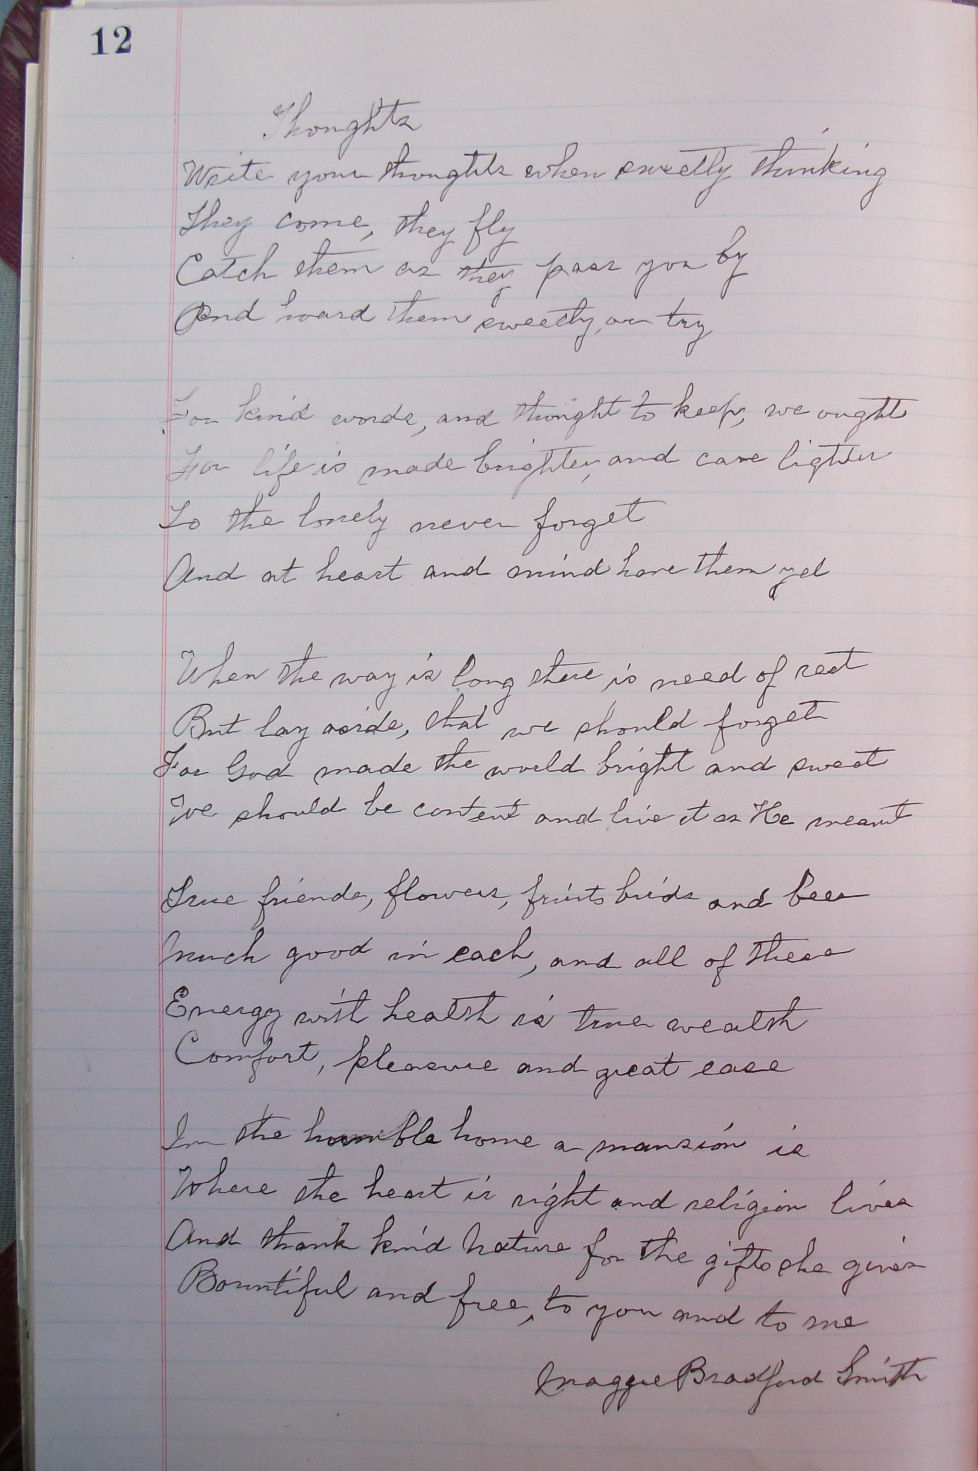 12
Thoughts
Write your thoughts when sweetly thinking
They come, they fly
Catch them as they pass you by
And hoard them sweetly, or try
For kind words, and thought to keep, we ought
For life is made brighter, and care lighter
To the lonely never forget
And at heart and mind have them yet
When the way is long there is need of rest
But lay aside, that we should forget
For God made the world bright and sweet
We should be content and live it as He meant
True friends, flowers, fruits birds and bees
Much good in each, and all of these
Energy with health is true wealth
Comfort, pleasure and great ease
In the humble home a mansion is
Where the heart is right and religion lives
And thank kind Nature for the gifts she gives
Bountiful and free, to you and to me
Maggie Bradford Smith